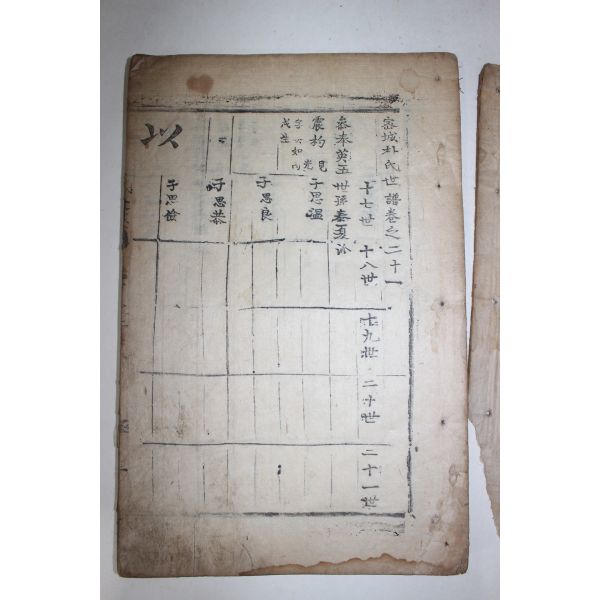 密城朴氏世譜卷之二十一
十七世 十八世 十九世 二十世 二十一世
參奉英玉世孫秦夏派
震杓見 子思溫
字
戊生
子思良
子思恭
子思儉
以